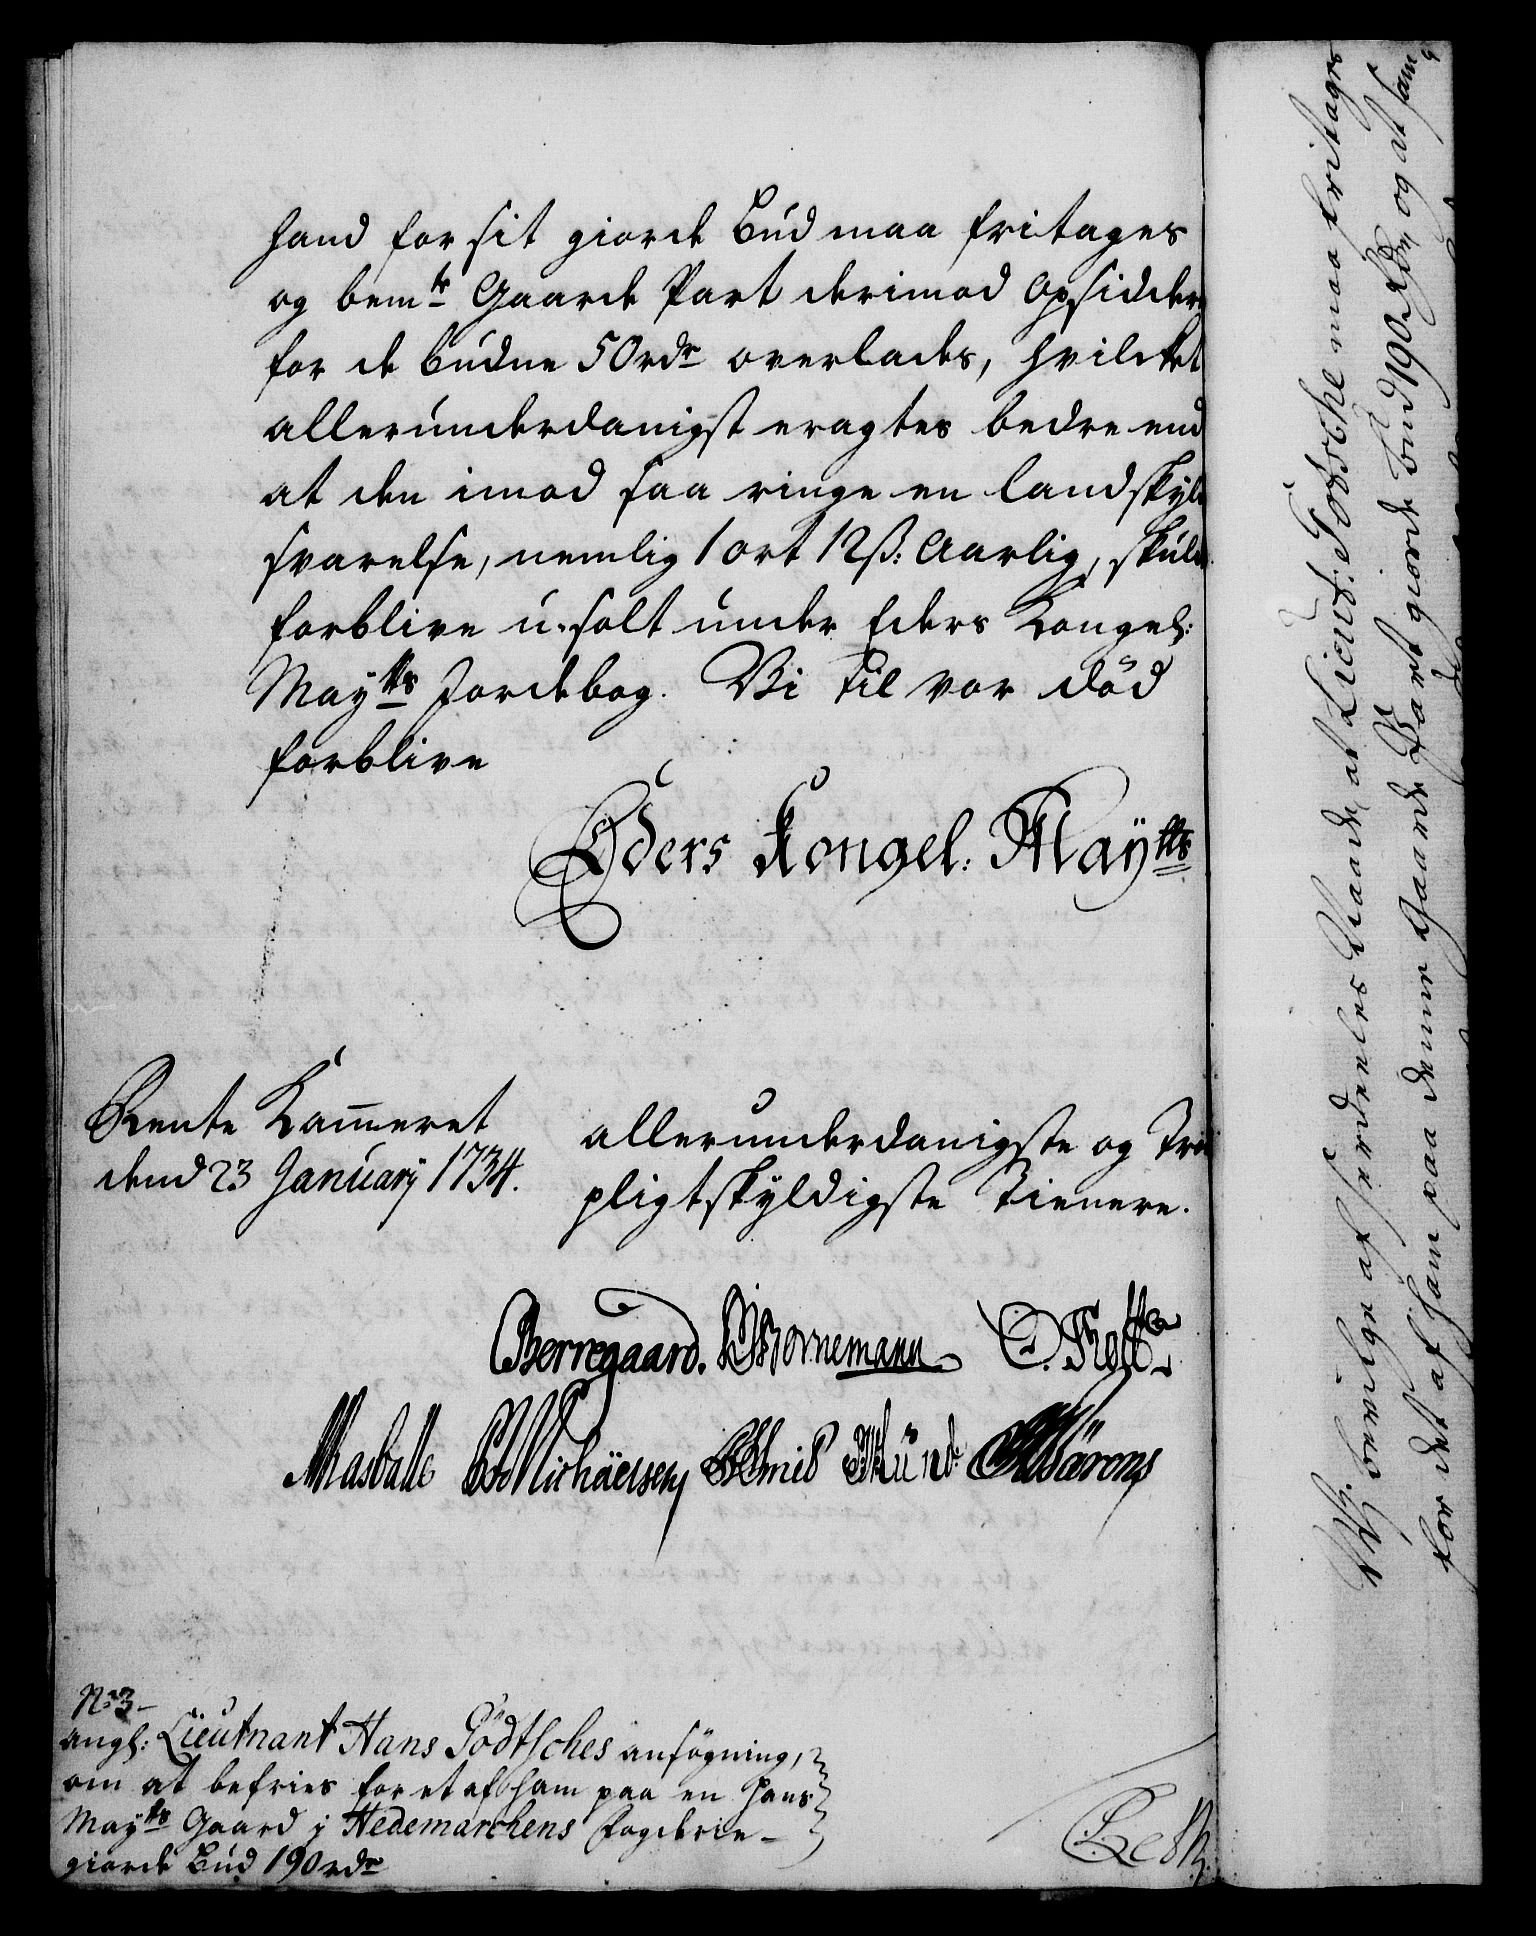 hand for sit giorde Bud maa fritages
og bem.te Gaarde Part derimod Opsidder
for de budne 50 rdr overlades, hvilcket
allerunderdanigst eragtes bedre end
at den imod saa ringe en landskyld
svarelse, nemlig 1 ort 12 ß: Aarlig, skulde
forblive u-solt under Eders Kongel:
Mayts Jordebog. Vi til vor död
forblive
Eders Kongel: Maÿtts
Rente Kammeret
dend 23 Januarij 1734.
allerunderdanigste og Troe
pligtskyldigste Tienere.
Berregaard. Bornemann Rott
Masballe Michaelsen Smid Münd
No 3
angl: Lieutnant Hans Gödtsches ansögning,
om at befries for et af ham paa en Hans
Mayts Gaard j Hedemarchens Fogderie
giorde Bud 190 rdr
bevilge af særdeeles Naade, at Lieut: Götsche maa fritages
for det af ham paa denne Gaarde Part giorde bud 190 Rdr, og at sam